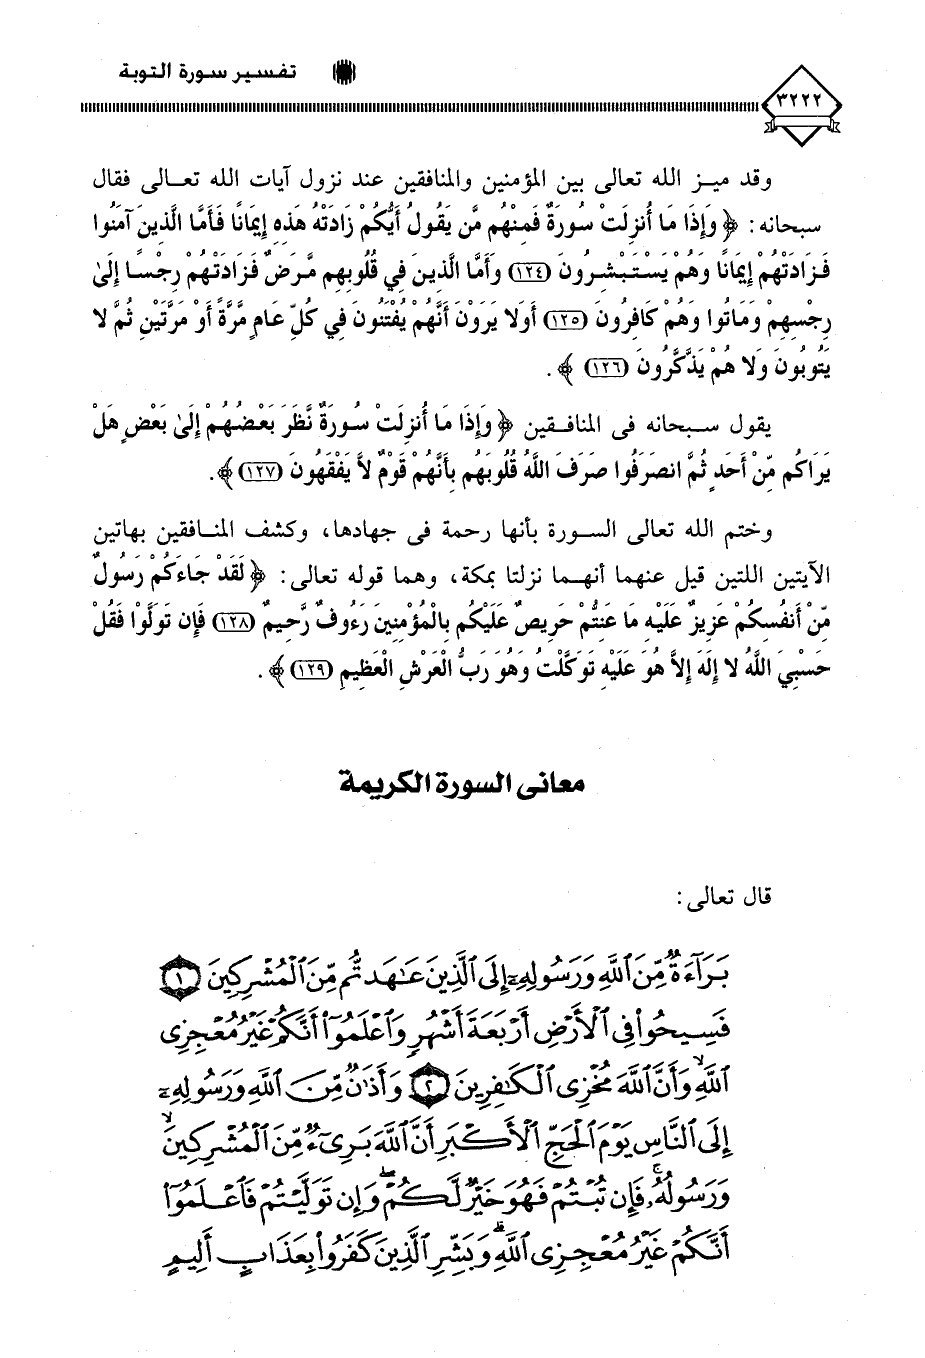 تفسير سورة التوبة
٣٢٢٢
وقد ميز الله تعالى بين المؤمنين والمنافقين عند نزول آيات الله تعالى فقال
سبحانه: ﴿ وَإِذَا مَا أُنزِلَتْ سُورَةٌ فَمِنْهُم مَّن يَقُولُ أَيُّكُمْ زَادَتْهُ هَذِهِ إِيمَانًا فَأَمَّا الَّذِينَ آمَنُوا
فَزَادَتْهُمْ إِيمَانًا وَهُمْ يَسْتَبْشِرُونَ (١٢٤) وَأَمَّا الَّذِينَ فِي قُلُوبِهِم مَّرَضٌ فَزَادَتْهُمْ رِجْسًا إِلَىٰ
رِجْسِهِمْ وَمَاتُوا وَهُمْ كَافِرُونَ (١٢٥) أَوَلا يَرَوْنَ أَنَّهُمْ يُفْتَنُونَ فِي كُلِّ عَامٍ مَّرَّةً أَوْ مَرَّتَيْنِ ثُمَّ لا
يَتُوبُونَ وَلا هُمْ يَذَّكَّرُونَ (١٢٦) ﴾ .
يقول سبحانه فى المنافقين ﴿ وَإِذَا مَا أُنزِلَتْ سُورَةٌ نَّظَرَ بَعْضُهُمْ إِلَىٰ بَعْضٍ هَلْ
يَرَاكُم مِّنْ أَحَدٍ ثُمَّ انصَرَفُوا صَرَفَ اللَّهُ قُلُوبَهُم بِأَنَّهُمْ قَوْمٌ لاَّ يَفْقَهُونَ (١٢٧) ﴾ .
وختم الله تعالى السورة بأنها رحمة فى جهادها، وكشف المنافقين بهاتين
الآيتين اللتين قيل عنهما أنهما نزلتا بمكة، وهما قوله تعالى: ﴿ لَقَدْ جَاءَكُمْ رَسُولٌ
مِّنْ أَنفُسِكُمْ عَزِيزٌ عَلَيْهِ مَا عَنِتُّمْ حَرِيصٌ عَلَيْكُم بِالْمُؤْمِنِينَ رَءُوفٌ رَّحِيمٌ (١٢٨) فَإِن تَوَلَّوْا فَقُلْ
حَسْبِيَ اللَّهُ لا إِلَهَ إِلاَّ هُوَ عَلَيْهِ تَوَكَّلْتُ وَهُوَ رَبُّ الْعَرْشِ الْعَظِيمِ (١٢٩) ﴾ .
معانى السورة الكريمة
قال تعالى:
بَرَآءَةٌ مِّنَ ٱللَّهِ وَرَسُولِهِۦٓ إِلَى ٱلَّذِينَ عَٰهَدتُّم مِّنَ ٱلْمُشْرِكِينَ ١
فَسِيحُوا۟ فِى ٱلْأَرْضِ أَرْبَعَةَ أَشْهُرٍ وَٱعْلَمُوٓا۟ أَنَّكُمْ غَيْرُ مُعْجِزِى
ٱللَّهِ ۙ وَأَنَّ ٱللَّهَ مُخْزِى ٱلْكَٰفِرِينَ ٢ وَأَذَٰنٌ مِّنَ ٱللَّهِ وَرَسُولِهِۦٓ
إِلَى ٱلنَّاسِ يَوْمَ ٱلْحَجِّ ٱلْأَكْبَرِ أَنَّ ٱللَّهَ بَرِىٓءٌ مِّنَ ٱلْمُشْرِكِينَ ۙ
وَرَسُولُهُۥ ۚ فَإِن تُبْتُمْ فَهُوَ خَيْرٌ لَّكُمْ ۖ وَإِن تَوَلَّيْتُمْ فَٱعْلَمُوٓا۟
أَنَّكُمْ غَيْرُ مُعْجِزِى ٱللَّهِ ۗ وَبَشِّرِ ٱلَّذِينَ كَفَرُوا۟ بِعَذَابٍ أَلِيمٍ